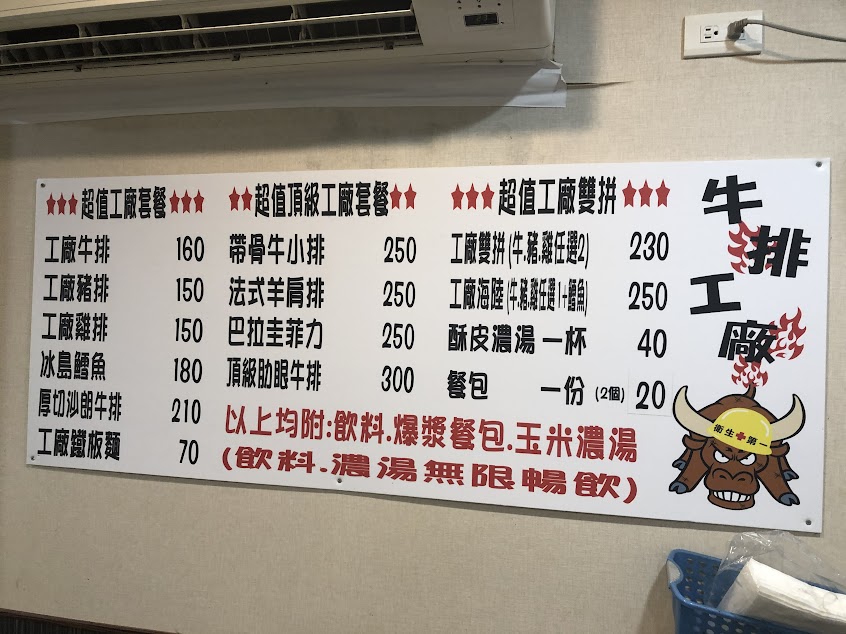 超值工廠套餐
工廠牛排 160
工廠豬排 150
工廠雞排 150
冰島鱈魚 180
厚切沙朗牛排 210
工廠鐵板麵 70
超值頂級工廠套餐
帶骨牛小排 250
法式羊肩排 250
巴拉圭菲力 250
頂級肋眼牛排 300
超值工廠雙拼
工廠雙拼(牛.豬.雞任選2) 230
工廠海陸(牛.豬.雞任選1+鱈魚) 250
酥皮濃湯 一杯 40
餐包 一份 (2個) 20
以上均附:飲料.爆漿餐包.玉米濃湯
(飲料.濃湯無限暢飲)
牛排工廠
衛生第一